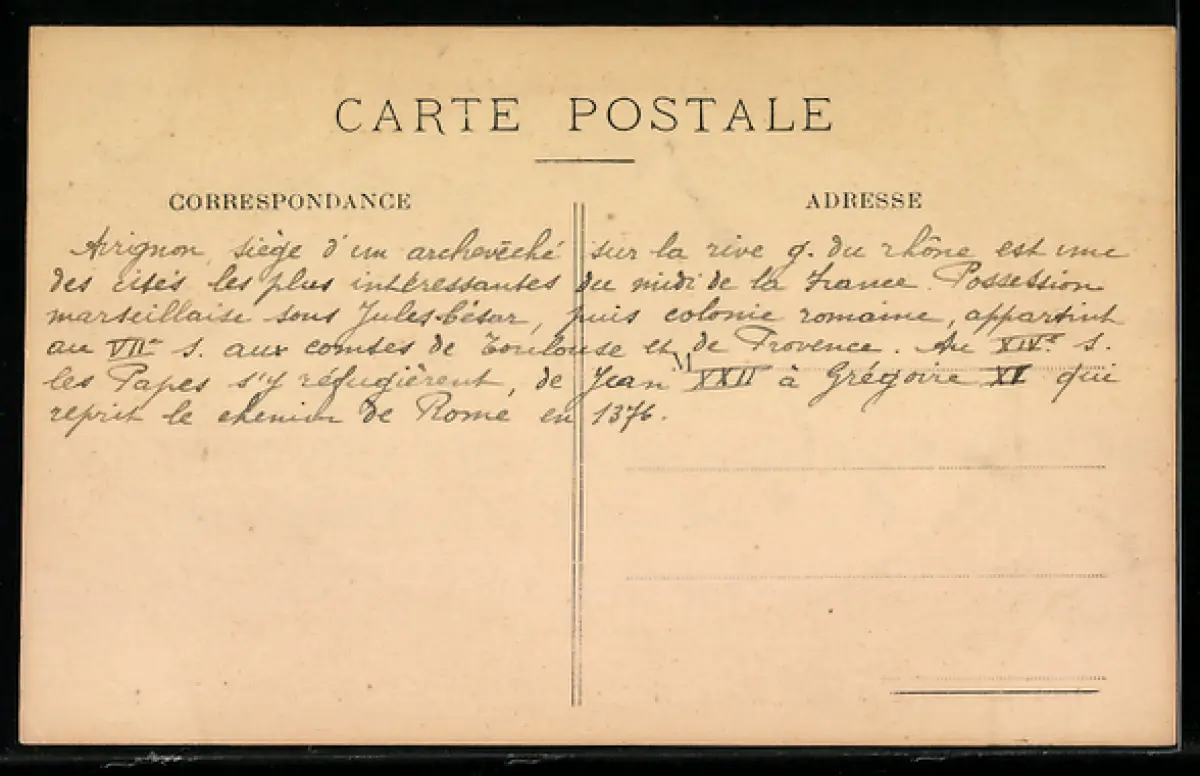 CARTE POSTALE
CORRESPONDANCE
ADRESSE
Avignon, siège d'un archevêché sur la rive g. du rhône est une
des cités les plus intéressantes du midi de la France. Possession
marseillaise sous Jules-César, puis colonie romaine, appartint
au VIIe s. aux comtes de Toulouse et de Provence. Au XIVe s.
les Papes s'y réfugièrent, de Jean XXII à Grégoire XI qui
reprit le chemin de Rome en 1376.